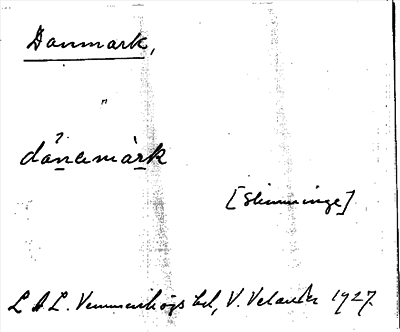 Danmark,
"
dánemàrk
[Slimminge]
L A L. Vemmenhögs hd, V. Velander 1927.